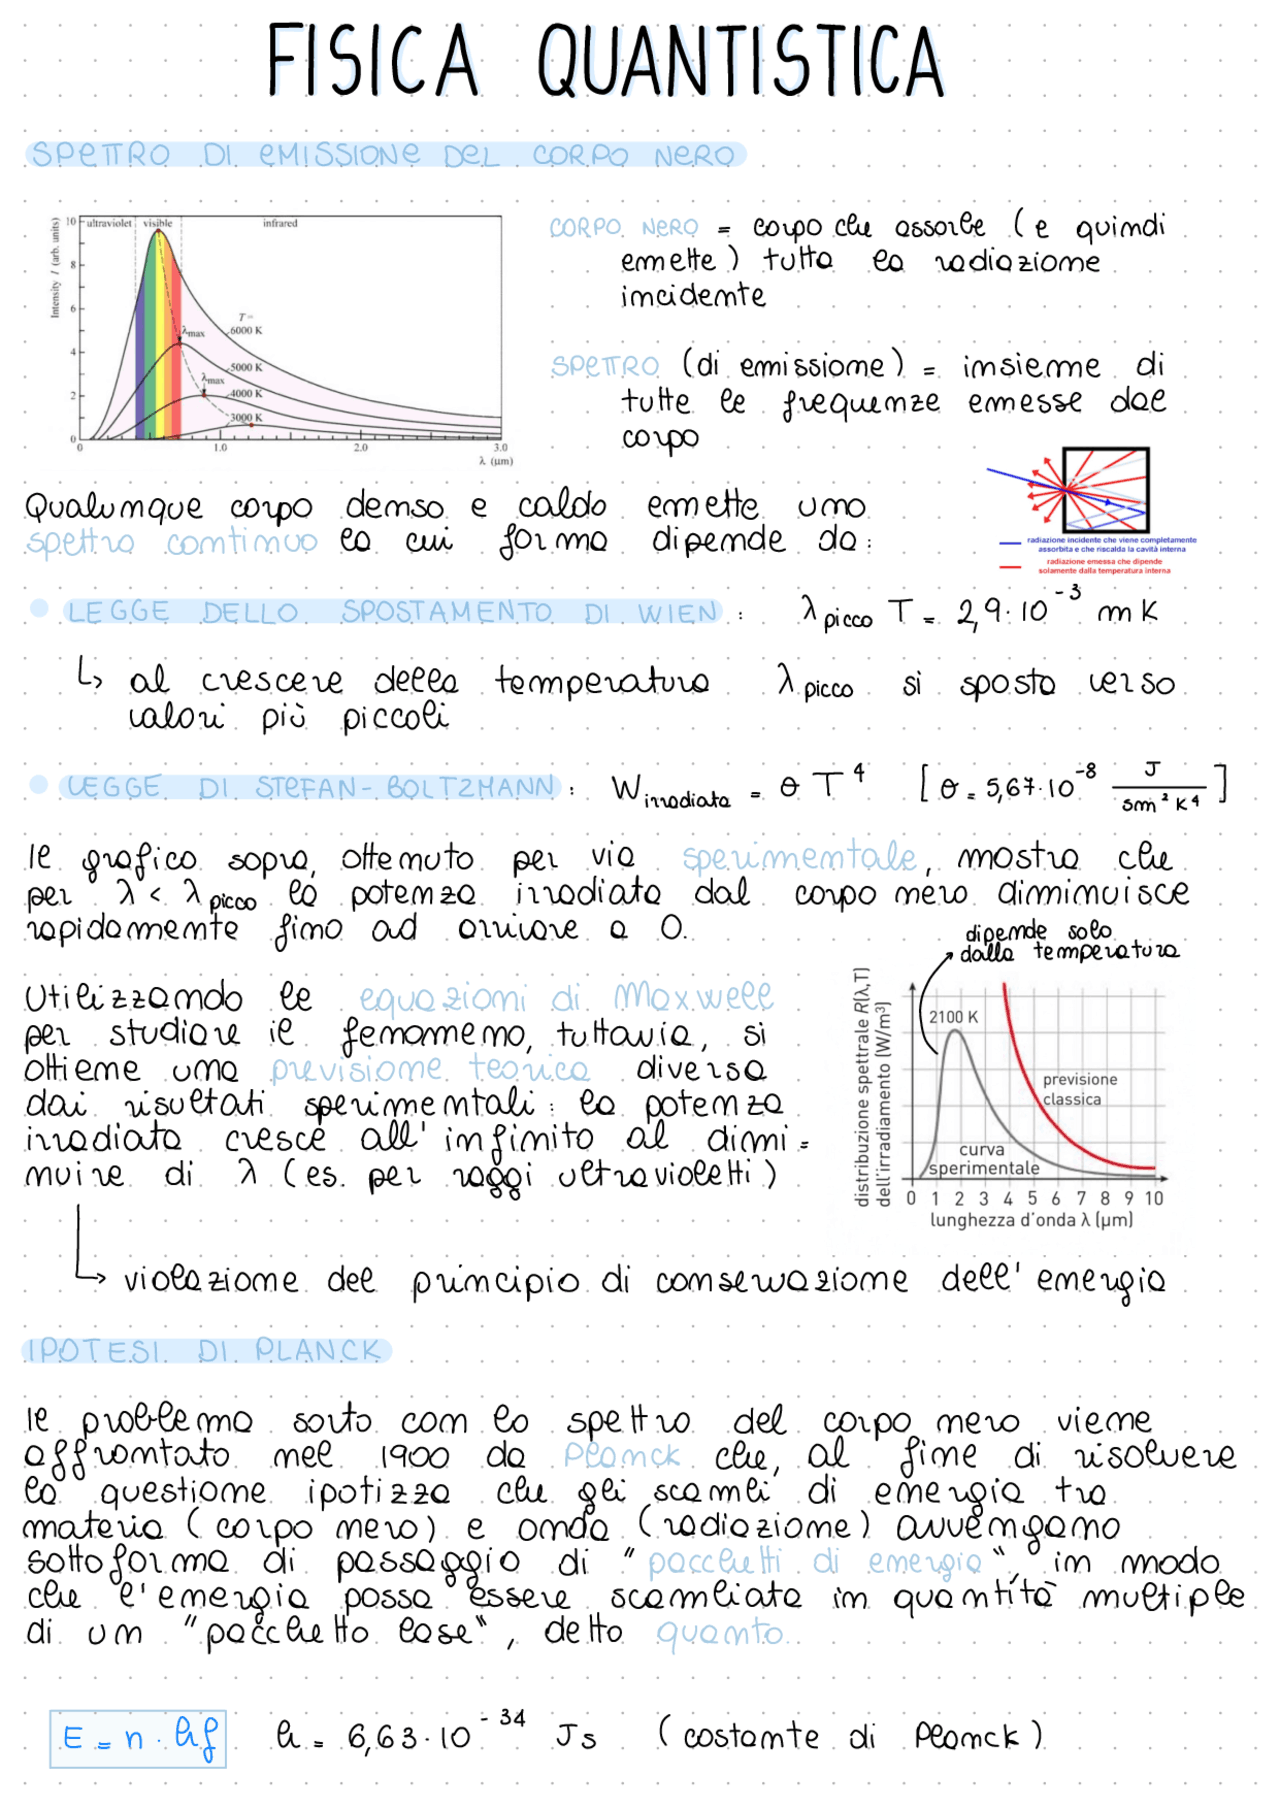 FISICA QUANTISTICA
SPETTRO DI EMISSIONE DEL CORPO NERO
Intensity I (arb. units)
10
8
6
4
2
0
ultraviolet visible infrared
T =
6000 K
λmax
5000 K
λmax
4000 K
3000 K
0 1.0 2.0 3.0
λ (μm)
CORPO NERO = corpo che assorbe (e quindi
emette) tutta la radiazione
incidente
SPETTRO (di emissione) = insieme di
tutte le frequenze emesse dal
corpo
Qualunque corpo denso e caldo emette uno
spettro continuo la cui forma dipende da:
radiazione incidente che viene completamente
assorbita e che riscalda la cavità interna
radiazione emessa che dipende
solamente dalla temperatura interna
• LEGGE DELLO SPOSTAMENTO DI WIEN : λ picco T = 2,9·10⁻³ m K
↳ al crescere della temperatura λ picco si sposta verso
valori più piccoli
• LEGGE DI STEFAN-BOLTZMANN : W irradiata = θ T⁴ [θ = 5,67·10⁻⁸ J / sm² K⁴]
Il grafico sopra, ottenuto per via sperimentale, mostra che
per λ < λ picco la potenza irradiata dal corpo nero diminuisce
rapidamente fino ad arrivare a 0.
dipende solo
dalla temperatura
Utilizzando le equazioni di Maxwell
per studiare il fenomeno, tuttavia, si
ottiene una previsione teorica diversa
dai risultati sperimentali: la potenza
irradiata cresce all'infinito al dimi=
nuire di λ (es. per raggi ultravioletti)
distribuzione spettrale R(λ,T)
dell'irradiamento (W/m³)
2100 K
previsione
classica
curva
sperimentale
0 1 2 3 4 5 6 7 8 9 10
lunghezza d'onda λ (μm)
↳ violazione del principio di conservazione dell'energia
IPOTESI DI PLANCK
Il problema sorto con lo spettro del corpo nero viene
affrontato nel 1900 da Planck che, al fine di risolvere
la questione ipotizza che gli scambi di energia tra
materia (corpo nero) e onda (radiazione) avvengano
sotto forma di passaggio di "pacchetti di energia", in modo
che l'energia possa essere scambiata in quantità multiple
di un "pacchetto base", detto quanto.
E = n · hf h = 6,63·10⁻³⁴ Js (costante di Planck)